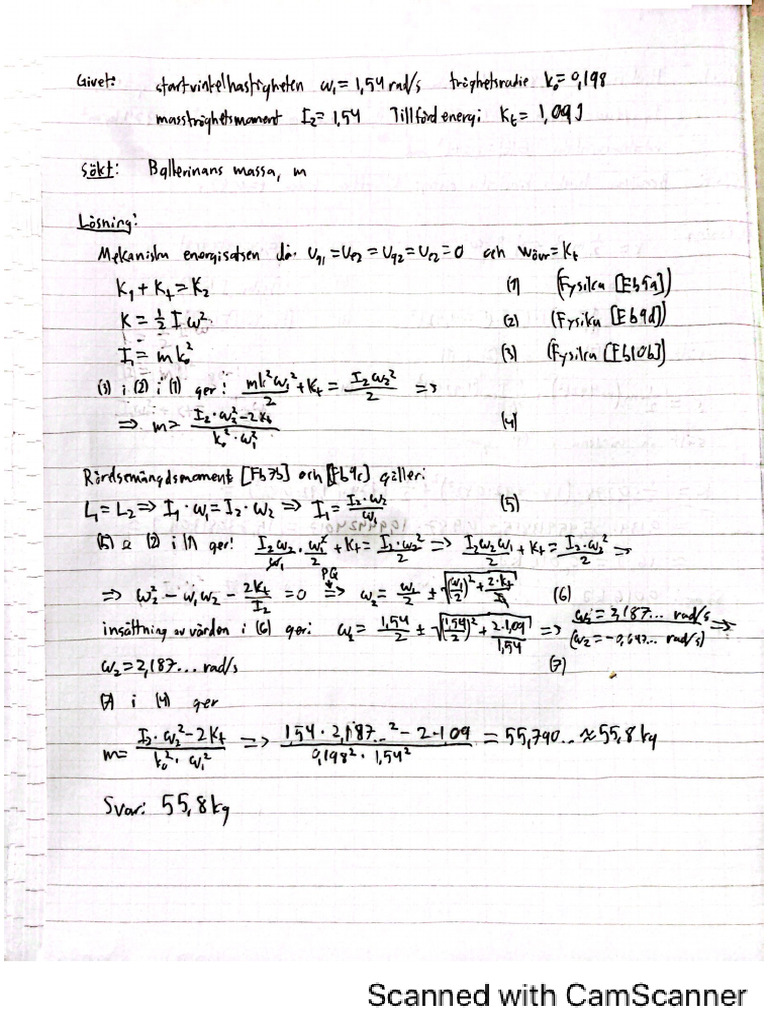 Givet: startvinkelhastigheten ω₁ = 1,54 rad/s tröghetsradie k₀ = 0,198
masströghetsmoment I₂ = 1,54 Tillförd energi Kₜ = 1,09 J
Sökt: Ballerinans massa, m
Lösning:
Mekaniska energisatsen där Ug₁ = Ue2 = Ug2 = Ue2 = 0 och Wövr = Kₜ
K₁ + Kₜ = K₂ (1) (Fysika [Eb5a])
K = ½ I ω² (2) (Fysika [Eb9d])
I₁ = m k₀² (3) (Fysika [Fb10b])
(3) i (2) i (1) ger: mk²ω₁²/2 + Kₜ = I₂ω₂²/2 =>
=> m = I₂·ω₂² - 2Kₜ / k₀²·ω₁² (4)
Rörelsemängdsmoment [Fb7b] och [Fb9c] gäller:
L₁ = L₂ => I₁·ω₁ = I₂·ω₂ => I₁ = I₂·ω₂/ω₁ (5)
(5) & (2) i (1) ger: I₂ω₂/ω₁ · ω₁²/2 + Kₜ = I₂·ω₂²/2 => I₂ω₂ω₁/2 + Kₜ = I₂·ω₂²/2 =>
=> ω₂² - ω₁ω₂ - 2Kₜ/I₂ = 0 PQ => ω₂ = ω₁/2 ± √((ω₁/2)² + 2·Kₜ/I₂) (6)
insättning av värden i (6) ger: ω₂ = 1,54/2 ± √((1,54/2)² + 2·1,09/1,54) => ω₂ = 2,187... rad/s (ω₂ = -0,647... rad/s) =>
ω₂ = 2,187... rad/s (7)
(7) i (4) ger
m = I₂·ω₂² - 2Kₜ / k₀²·ω₁² => 1,54·2,187...² - 2·1,09 / 0,198²·1,54² = 55,790... ≈ 55,8 kg
Svar: 55,8 kg
Scanned with CamScanner